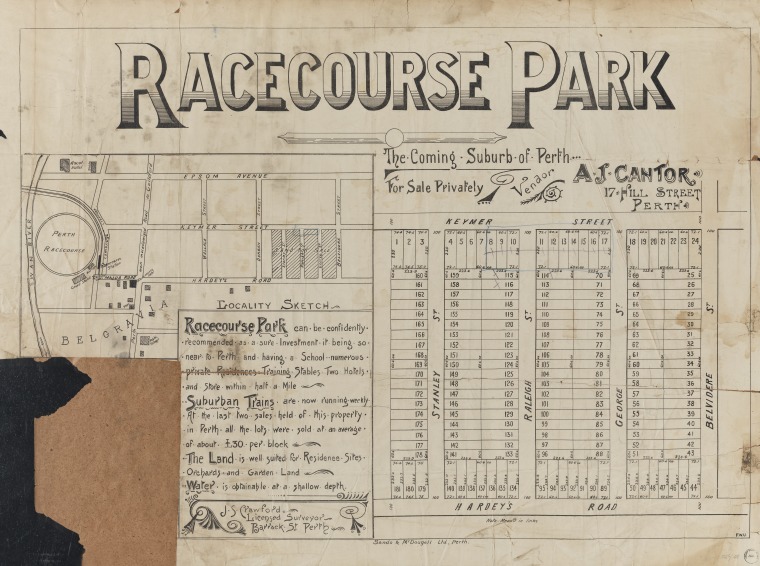 RACECOURSE PARK
The Coming Suburb of Perth
For Sale Privately
Vendor
A.J. CANTOR
17 HILL STREET
PERTH
EPSOM AVENUE
KEYMER STREET
HARDEY'S ROAD
PERTH
RACECOURSE
SWAN RIVER
BELGRAVIA
LOCALITY SKETCH
Racecourse Park can be confidently
recommended as a sure Investment it being so
near to Perth and having a School numerous
private Residences Training Stables Two Hotels
and Store within half a Mile
Suburban Trains are now running weekly
At the last two sales held of this property
in Perth all the lots were sold at an average
of about £30 per block
The Land is well suited for Residence Sites
Orchards and Garden Land
Water is obtainable at a shallow depth
J.S. Crawford
Licensed Surveyor
Barrack St Perth
KEYMER STREET
1 2 3 4 5 6 7 8 9 10 11 12 13 14 15 16 17 18 19 20 21 22 23 24
160 159 115 114 70 69 25
161 158 116 113 71 68 26
162 157 117 112 72 67 27
163 156 118 111 73 66 28
164 155 119 110 74 65 29
165 154 120 109 75 64 30
166 153 121 108 76 63 31
167 152 122 107 77 62 32
168 151 123 106 78 61 33
169 150 124 105 79 60 34
170 149 125 104 80 59 35
171 148 126 103 81 58 36
172 147 127 102 82 57 37
173 146 128 101 83 56 38
174 145 129 100 84 55 39
175 144 130 99 85 54 40
176 143 131 98 86 53 41
177 142 132 97 87 52 42
178 141 133 96 88 51 43
181 180 179 140 139 138 137 136 135 134 95 94 93 92 91 90 89 50 49 48 47 46 45 44
STANLEY ST
RALEIGH ST
GEORGE ST
BELVIDERE ST
HARDEY'S ROAD
Sands & McDougall Ltd, Perth.